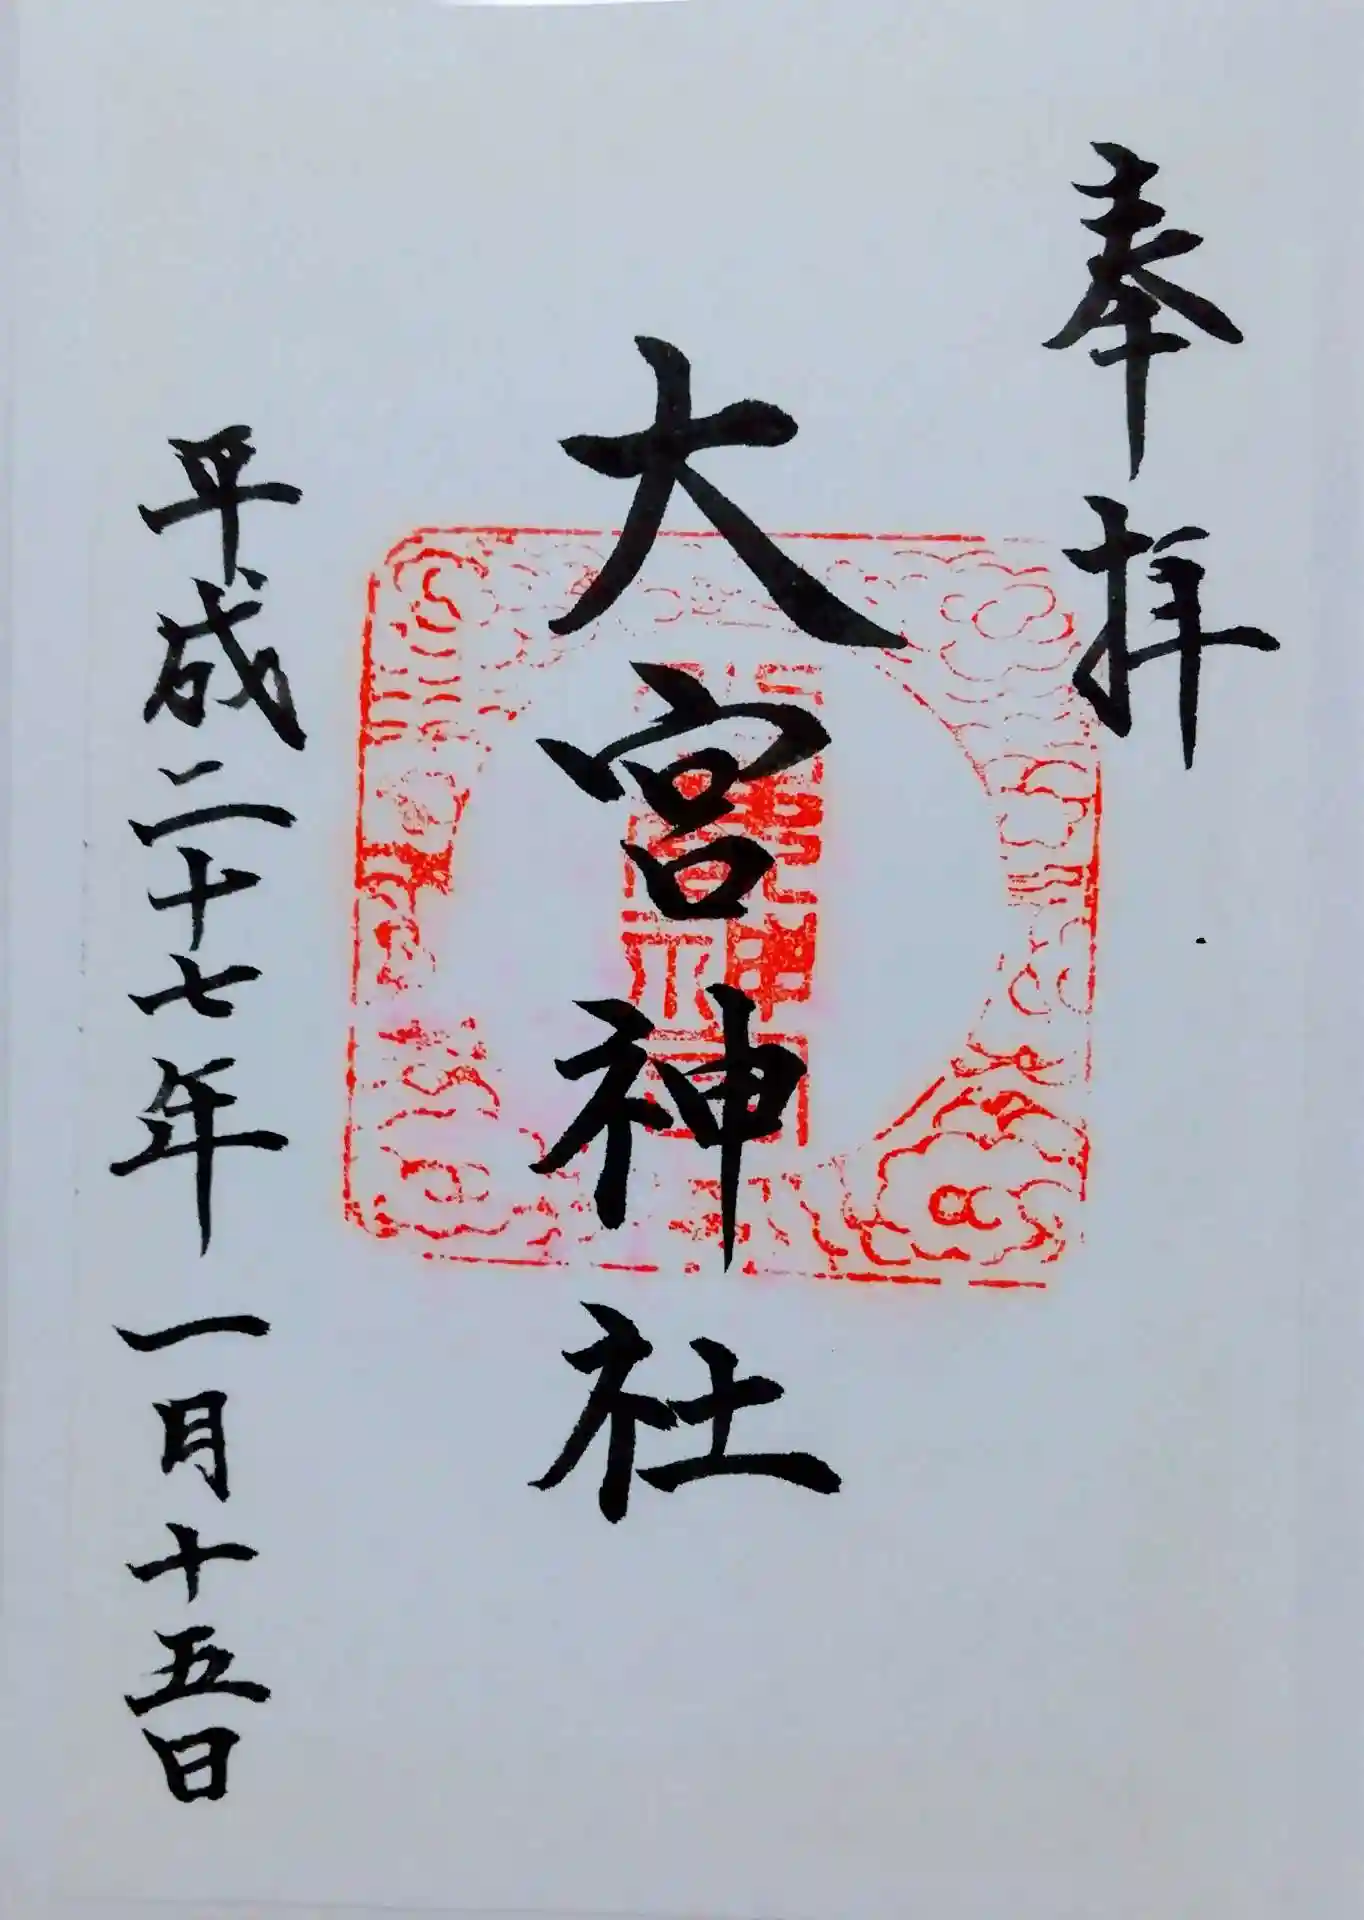 奉拝
大宮神社
平成二十七年一月十五日